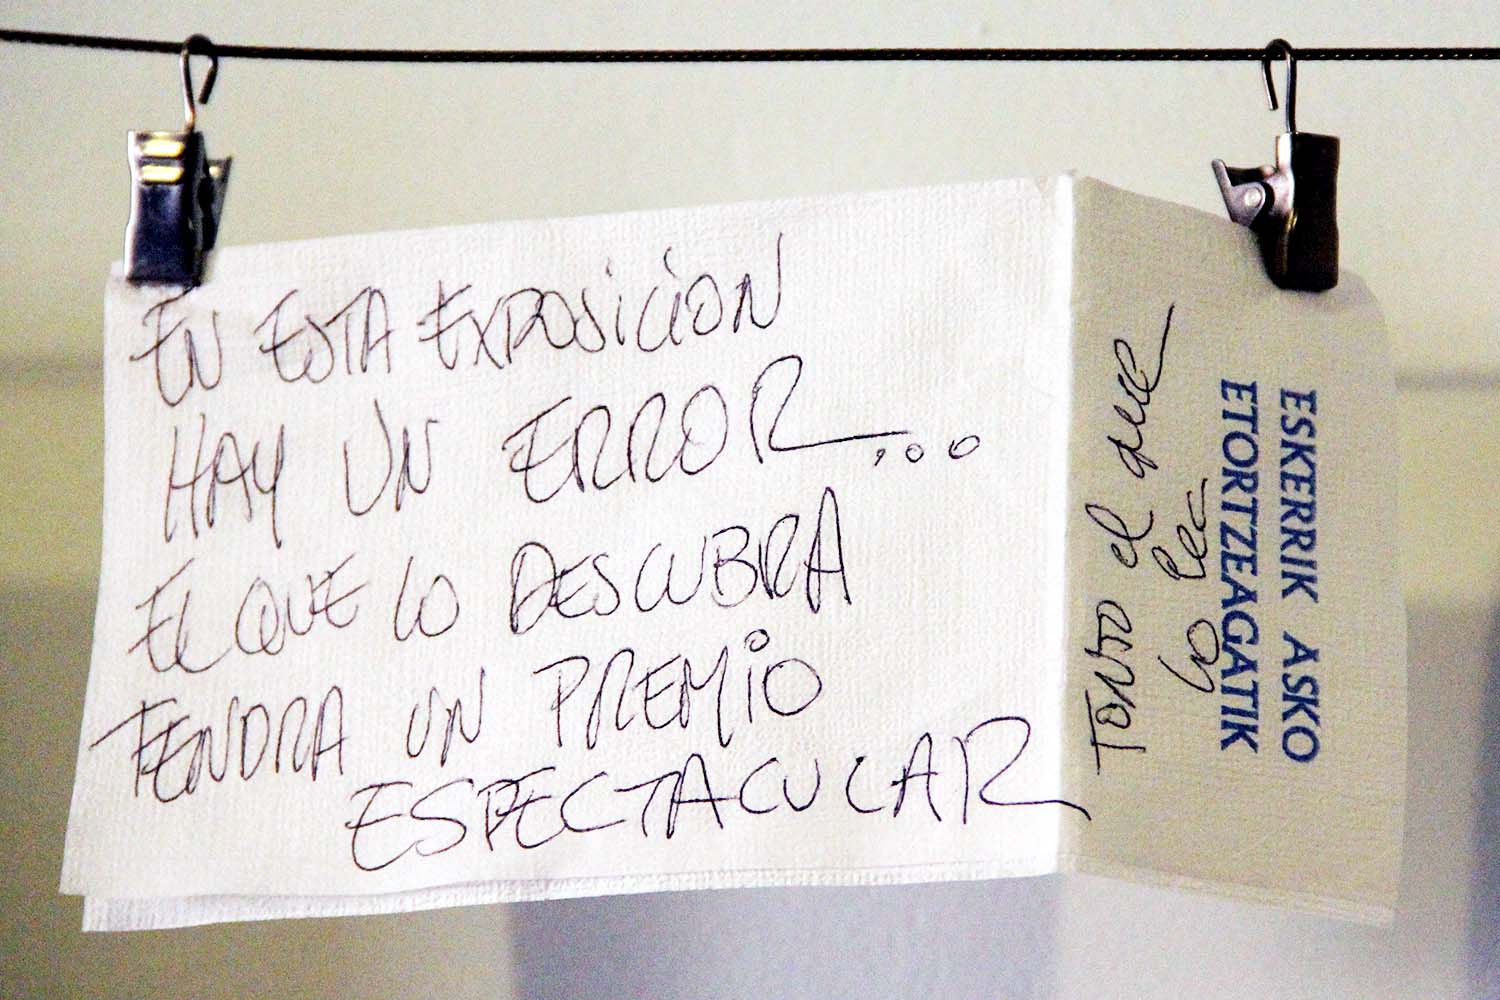 EN ESTA EXPOSICION
HAY UN ERROR...
EL QUE LO DESCUBRA
TENDRA UN PREMIO
ESPECTACULAR
Tonto el que
lo lea
ESKERRIK ASKO
ETORTZEAGATIK